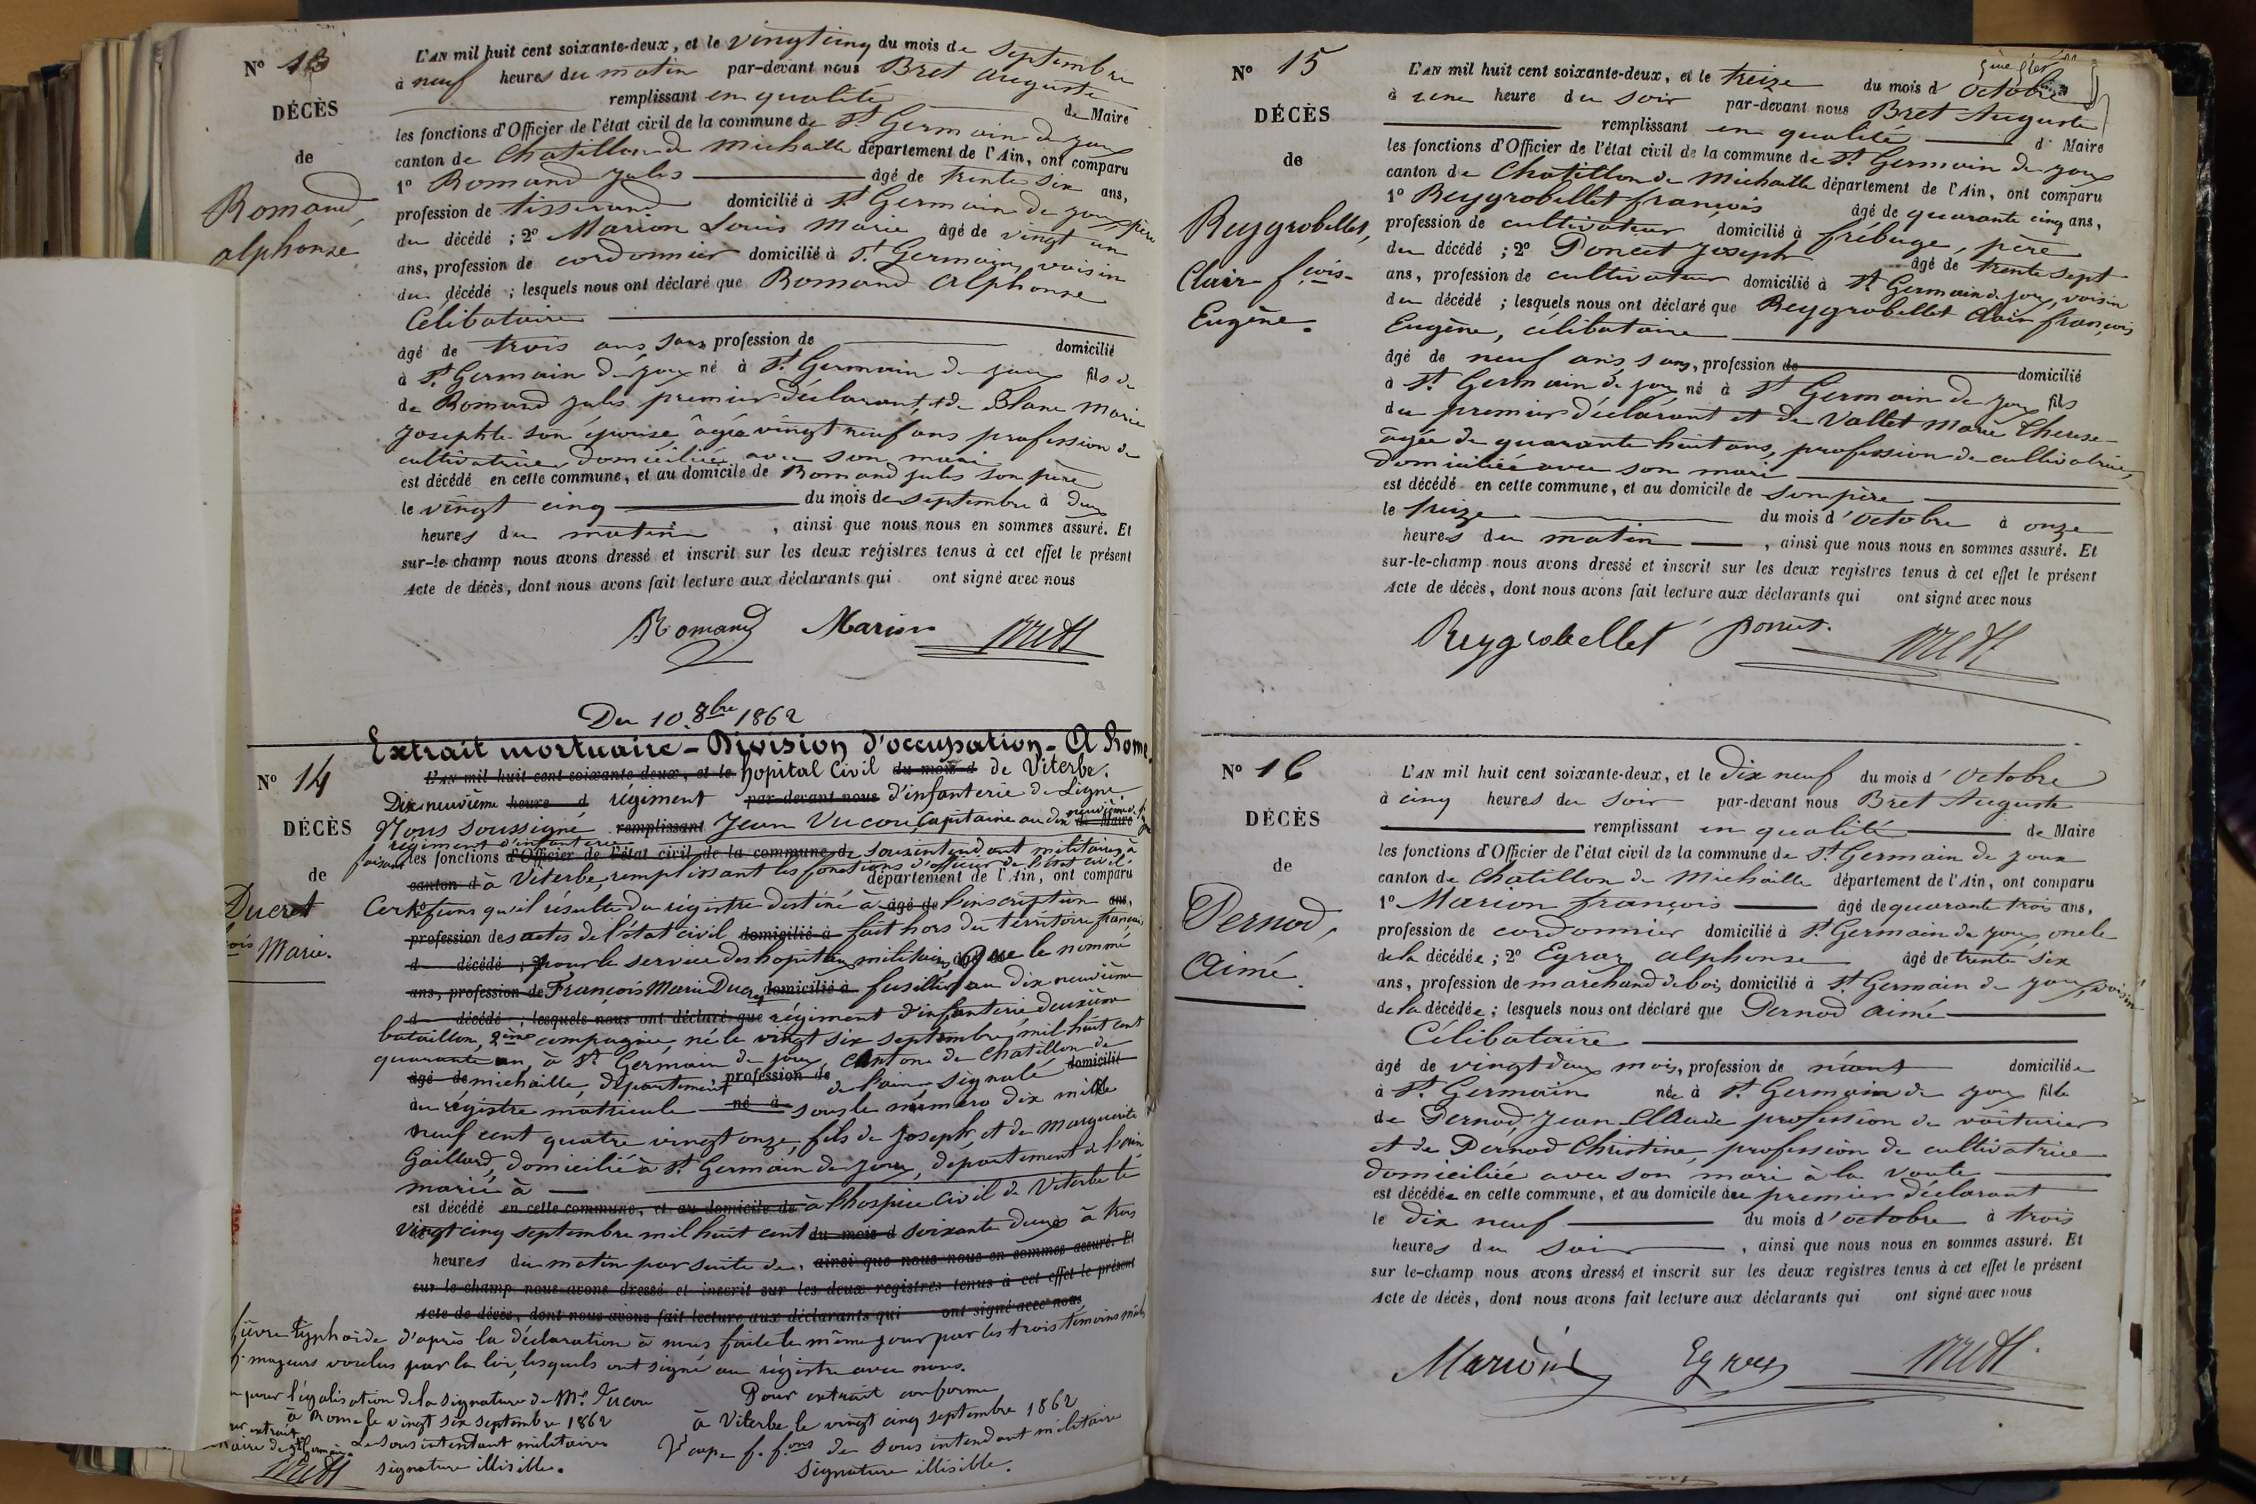 N° 13
DÉCÈS
de
Romand,
alphonse
L'AN mil huit cent soixante-deux, et le vingt cinq du mois de septembre
à neuf heures du matin par-devant nous Bret Auguste
remplissant en qualité de Maire
les fonctions d'Officier de l'état civil de la commune de St Germain de joux
canton de Chatillon de Michaille département de l'Ain, ont comparu
1° Romand Jules âgé de trente six ans,
profession de tisserand domicilié à St Germain de joux, père
du décédé ; 2° Marion Louis Marie âgé de vingt un
ans, profession de cordonnier domicilié à St Germain, voisin
du décédé ; lesquels nous ont déclaré que Romand Alphonse
Célibataire
âgé de trois ans, sans profession de domicilié
à St Germain de joux né à St Germain de joux fils de
de Romand Jules premier déclarant, et de Blanc Marie
Josephte son épouse, âgée vingt neuf ans profession de
cultivatrice domiciliée avec son mari
est décédé en cette commune, et au domicile de Romand Jules son père
le vingt cinq du mois de septembre à deux
heures du matin , ainsi que nous nous en sommes assuré. Et
sur-le-champ nous avons dressé et inscrit sur les deux registres tenus à cet effet le présent
Acte de décès, dont nous avons fait lecture aux déclarants qui ont signé avec nous
Romand Marion Brett
Du 10 8bre 1862
Extrait mortuaire - Division d'occupation - A Rome.
N° 14
DÉCÈS
de
Ducret
çois Marie.
L'AN mil huit cent soixante-deux, et le hopital Civil du mois d de Viterbe.
Dix neuvième heure d régiment par-devant nous d'infanterie de Ligne.
Nous soussigné remplissant Jean Vucou, Capitaine au dix neuvième de Maire
régiment d'infanterie
faisant les fonctions d'Officier de l'état civil de la commune de sousintendant militaire, à
canton d à Viterbe, remplissant les fonctions d'officier de l'état civil département de l'Ain, ont comparu
Certifions qu'il résulte du régistre destiné à âgé de l'inscription ans,
profession des actes de l'état civil domicilié à fait hors du territoire français
d décédé ; 2° pour le service des hopitaux militaires, âgé de que le nommé
ans, profession de François Marie Ducret domicilié à fusillier au dix neuvième
d décédé ; lesquels nous ont déclaré que régiment d'infanterie deuxième
bataillon, 2ème compagnie, né le vingt six septembre mil huit cent
quarante un, à St Germain de joux, Canton de Chatillon de
âgé de michaille, département profession de de l'ain signalé domicilié
au régistre matricule né à sous le numéro dix mille
neuf cent quatre vingt onze, fils de Joseph et de marguerite
Gaillard, domicilié à St Germain de joux, département de l'ain
marié à
est décédé en cette commune, et au domicile de à l'hospice Civil de Viterbe le
vingt cinq septembre mil huit cent du mois d soixante deux à trois
heures du matin par suite de, ainsi que nous nous en sommes assuré. Et
sur-le-champ nous avons dressé et inscrit sur les deux registres tenus à cet effet le présent
Acte de décès, dont nous avons fait lecture aux déclarants qui ont signé avec nous
fièvre typhoïde d'après la déclaration à nous faite le même jour par les trois témoins mâles
majeurs voulus par la loi, lesquels ont signé au régistre avec nous.
pour légalisation de la signature de Mr Vucou
à Rome le vingt six septembre 1862
Le sousintendant militaire
signature illisible.
extrait
maire de St Germain
Brett
Pour extrait conforme
à Viterbe le vingt cinq septembre 1862
cap. f. f.ons de sous intendant militaire
Signature illisible.
N° 15
DÉCÈS
de
Reygrobellet,
Clair fçois-
Eugène.
L'AN mil huit cent soixante-deux, et le treize du mois d'Octobre
à une heure du soir par-devant nous Bret Auguste
remplissant en qualité d Maire
les fonctions d'Officier de l'état civil de la commune de St Germain de joux
canton de Chatillon de Michaille département de l'Ain, ont comparu
1° Reygrobellet françois âgé de quarante cinq ans,
profession de cultivateur domicilié à frébuge, père
du décédé ; 2° Poncet Joseph âgé de trente sept
ans, profession de cultivateur domicilié à St Germain de joux, voisin
du décédé ; lesquels nous ont déclaré que Reygrobellet Clair françois
Eugène, célibataire
âgé de neuf ans sans, profession de domicilié
à St Germain de joux né à St Germain de joux fils
du premier déclarant et de Vallet Marie Therese
âgée de quarante huit ans, profession de cultivatrice,
domiciliée avec son mari
est décédé en cette commune, et au domicile de son père
le treize du mois d'octobre à onze
heures du matin , ainsi que nous nous en sommes assuré. Et
sur-le-champ nous avons dressé et inscrit sur les deux registres tenus à cet effet le présent
Acte de décès, dont nous avons fait lecture aux déclarants qui ont signé avec nous
Reygrobellet Poncet. Brett
N° 16
DÉCÈS
de
Pernod,
Aimé.
L'AN mil huit cent soixante-deux, et le Dix neuf du mois d'Octobre
à cinq heures du soir par-devant nous Bret Auguste
remplissant en qualité de Maire
les fonctions d'Officier de l'état civil de la commune de St Germain de joux
canton de Chatillon de Michaille département de l'Ain, ont comparu
1° Marion françois âgé de quarante trois ans,
profession de cordonnier domicilié à St Germain de joux, oncle
de la décédée ; 2° Egraz alphonse âgé de trente six
ans, profession de marchand de bois, domicilié à St Germain de joux, voisin
de la décédée ; lesquels nous ont déclaré que Pernod Aimé
Célibataire
âgé de vingt deux mois, profession de néant domiciliée
à St Germain née à St Germain de joux fille
de Pernod Jean Claude profession de voiturier
et de Pernod Christine, profession de cultivatrice
domiciliée avec son mari à la Voute
est décédée en cette commune, et au domicile du premier déclarant
le dix neuf du mois d'octobre à trois
heures du soir , ainsi que nous nous en sommes assuré. Et
sur le-champ nous avons dressé et inscrit sur les deux registres tenus à cet effet le présent
Acte de décès, dont nous avons fait lecture aux déclarants qui ont signé avec nous
Marion Egraz Brett